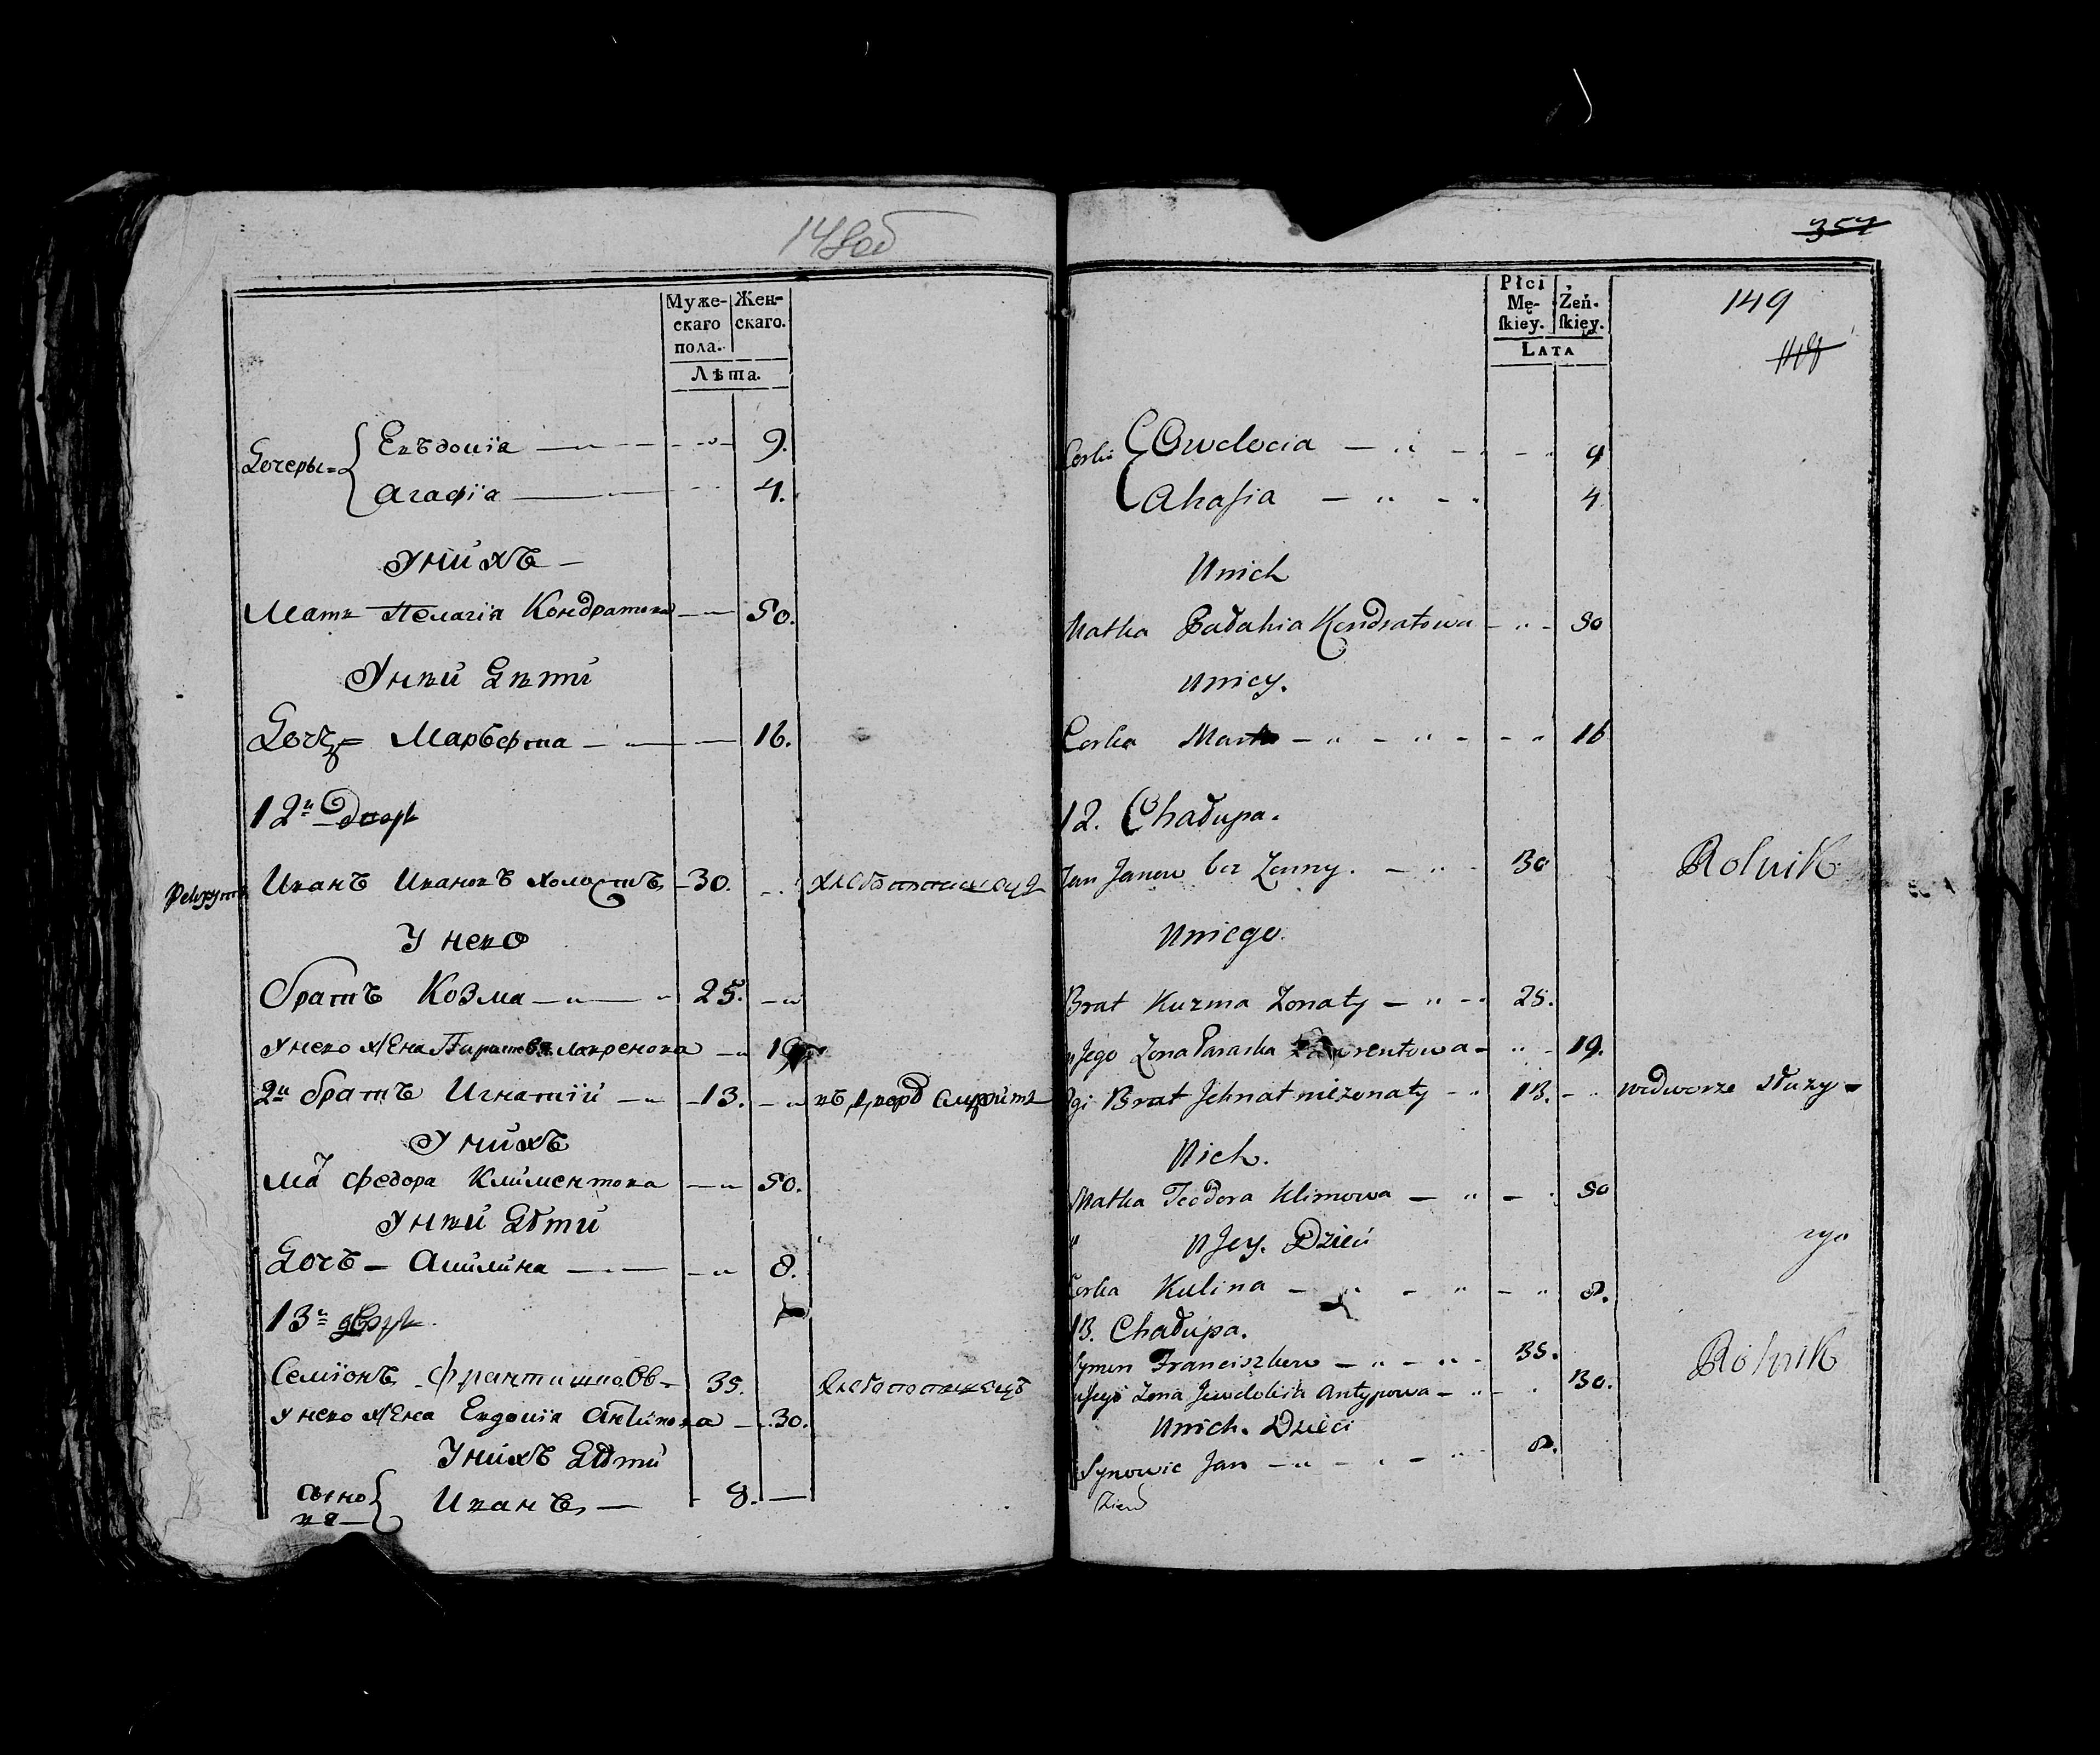 148об
Муже-
скаго
пола.
Жен-
скаго.
Лѣта.
Дочеры = Евъдокіа 9.
Агафіа 4.
У нихъ
Мать Пелагія Кондратова 50.
У нѣи Дѣти
Дочь = Маръфта 16.
12й Дворъ
Рекрутъ Иванъ Ивановъ холостъ 30. хлебопашецъ
У него
братъ Козма 25.
У него жена Лавренова 19
2й братъ Игнатій 13. въ дворѣ служитъ
У нихъ
Ма Федора Климентова 50.
У нѣи Дѣти
Дочъ Акилина 8.
13й дворъ
Семіонъ Францишковъ 35. хлебопашецъ
У него жена Евдокія Антипова 30.
У нихъ Дѣти
Сыно
вя Иванъ 8.
357
Płci
Mę-
ſkiey.
Żeń-
ſkiey.
LATA
149
148
Corki Owdocia 9
Ahafia 4
Unich
Matka Pałahia Kondratowa 50
Uniey.
Corka Marta 16
12. Chałupa.
Jan Janow bez Zonny. 30 Rolnik
Uniego.
Brat Kuzma Zonaty 25.
u Jego Zona Paraska Lawrentowa 19.
2gi Brat Jehnat niezonaty 13. wedworze służy
Nich.
Matka Teodora Klimowa 50
u Jey. Dzieci
Corka Kulina 8.
13. Chałupa.
Symon Franciszkow 35. Rolnik
u Jego Zona Jewdokia Antypowa 30.
Unich. Dzieci
Synowie Jan 8.